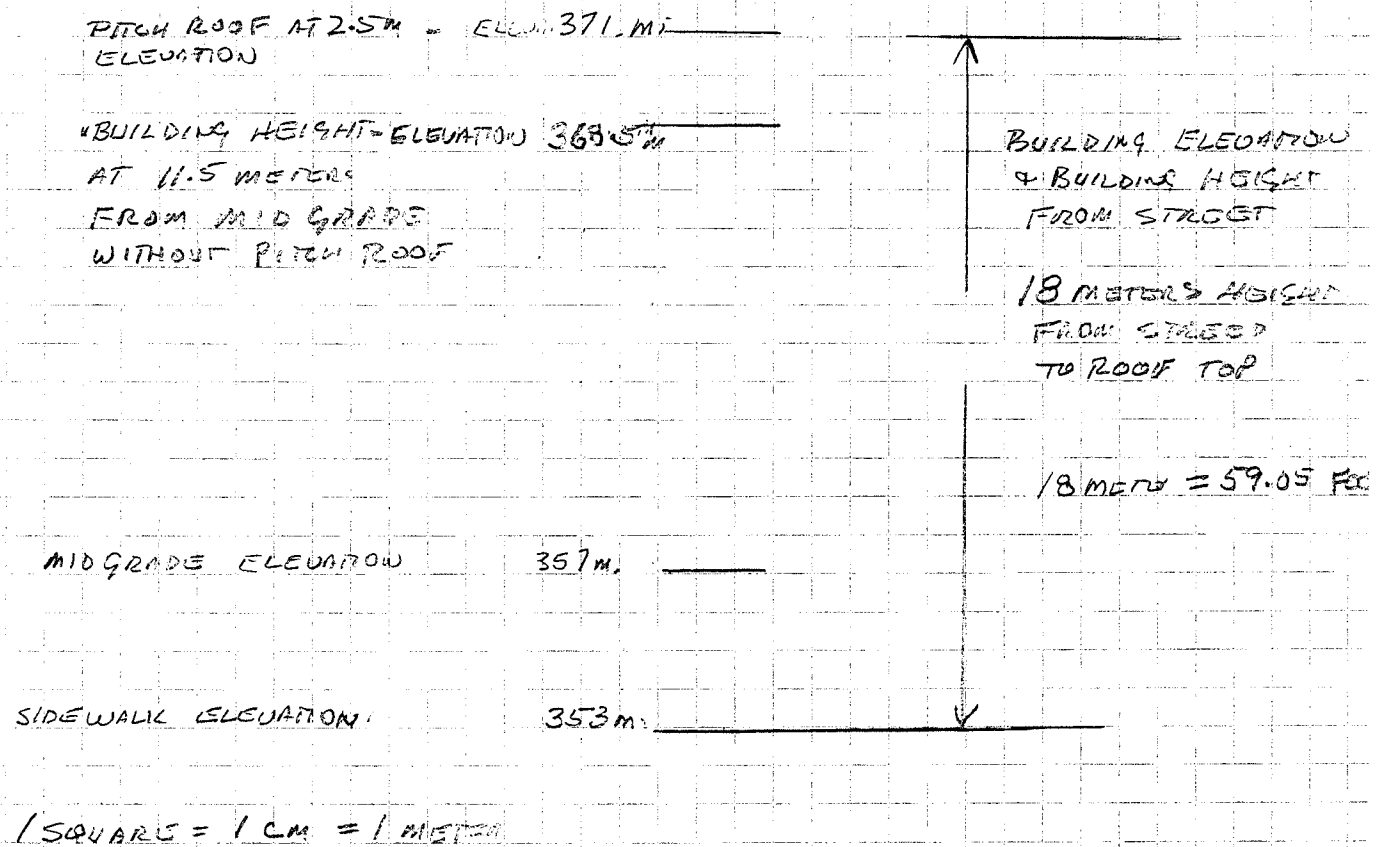 PITCH ROOF AT 2.5M - ELEV. 371. M
ELEVATION
BUILDING HEIGHT-ELEVATION 368.5M
AT 11.5 METERS
FROM MID GRADE
WITHOUT PITCH ROOF
BUILDING ELEVATION
& BUILDING HEIGHT
FROM STREET
18 METERS HEIGHT
FROM STREET
TO ROOF TOP
18 METR = 59.05 FEE
MID GRADE ELEVATION 357m.
SIDEWALK ELEVATION. 353m.
1 SQUARE = 1 CM = 1 METER